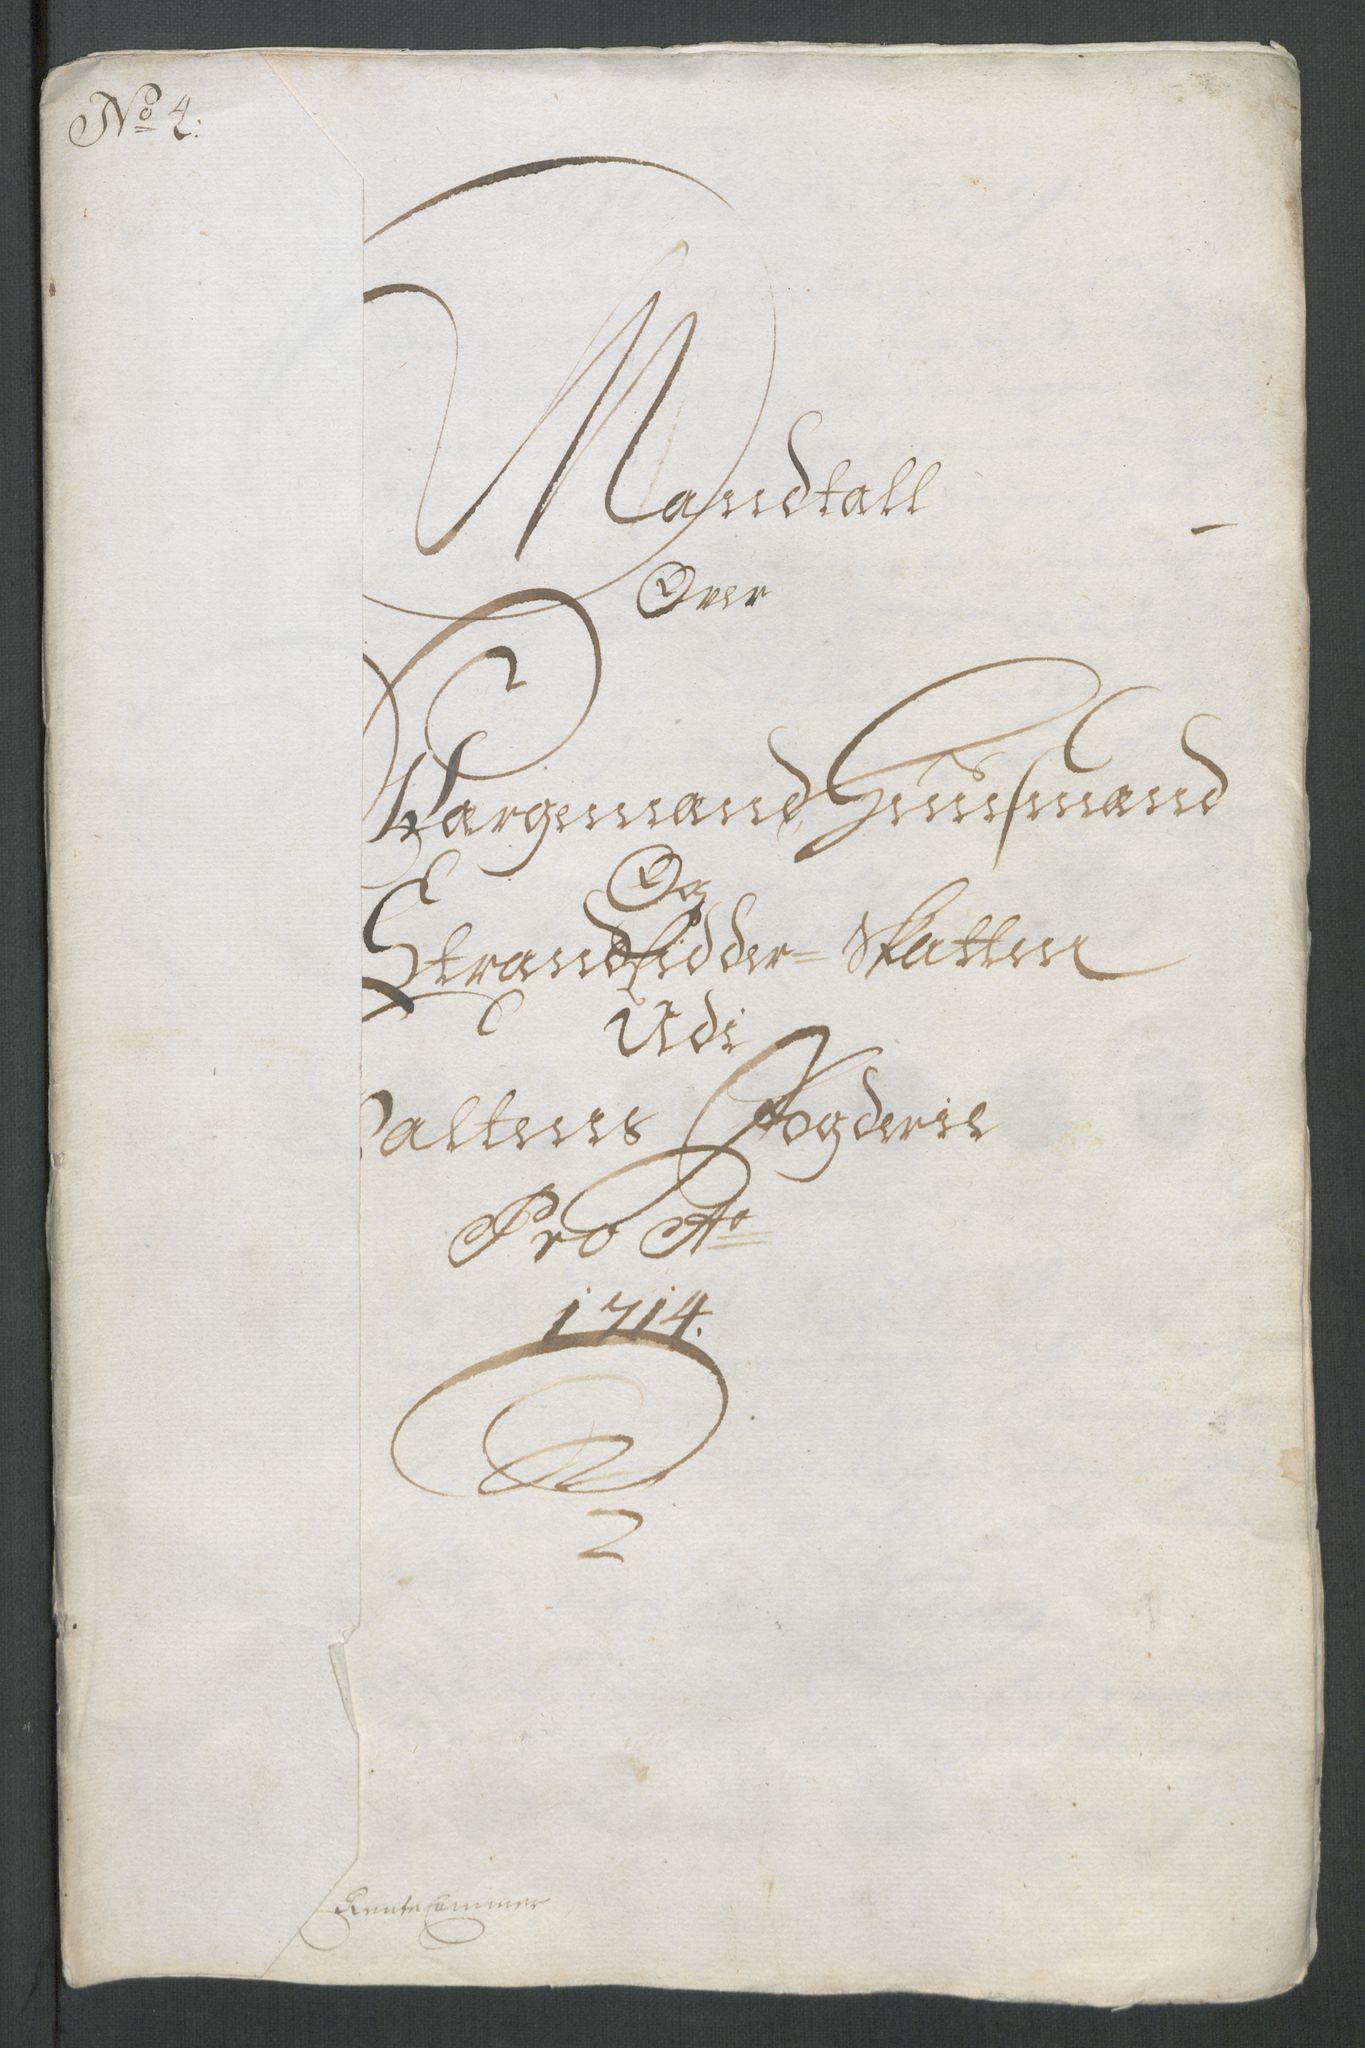 No 4:
Mandtall
Over
Wargemand Huusmand
Og
Strandsidder= Skatten
Udi
altens Fogderie
Pro Ao
1714.
RenteCammer